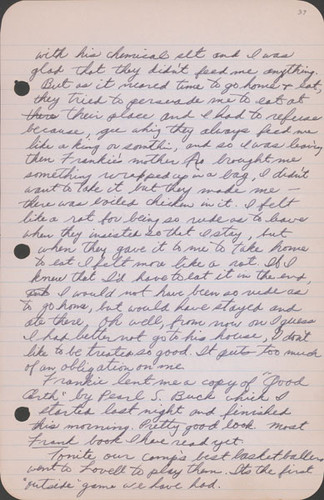 37
with his chemical set and I was
glad that they didn't feed me anything.
But as it neared time to go home & eat,
they tried to persuade me to eat at
there their place and I had to refuse
because, gee whiz they always feed me
like a king or somthin', and so I was leaving
then Frankie's mother brought me
something wrapped up in a bag, I didn't
want to take it but they made me —
there was boiled chicken in it. I felt
like a rat for being so rude as to leave
when they insisted so that I stay, but
when they gave it to me to take home
to eat I felt more like a rat. If I
knew that I'd have to eat it in the end,
I would not have been so rude as
to go home, but would have stayed and
ate there. Oh well, from now on I guess
I had better not go to his house, I don't
like to be treated so good. It puts too much
of an obligation on me.
Frankie lent me a copy of "Good
Earth" by Pearl S. Buck which I
started last night and finished
this morning. Pretty good book most
Frank book I have read yet.
Tonite, our camp's best basketballers
went to Lovell to play them. Its the first
"outside" game we have had.